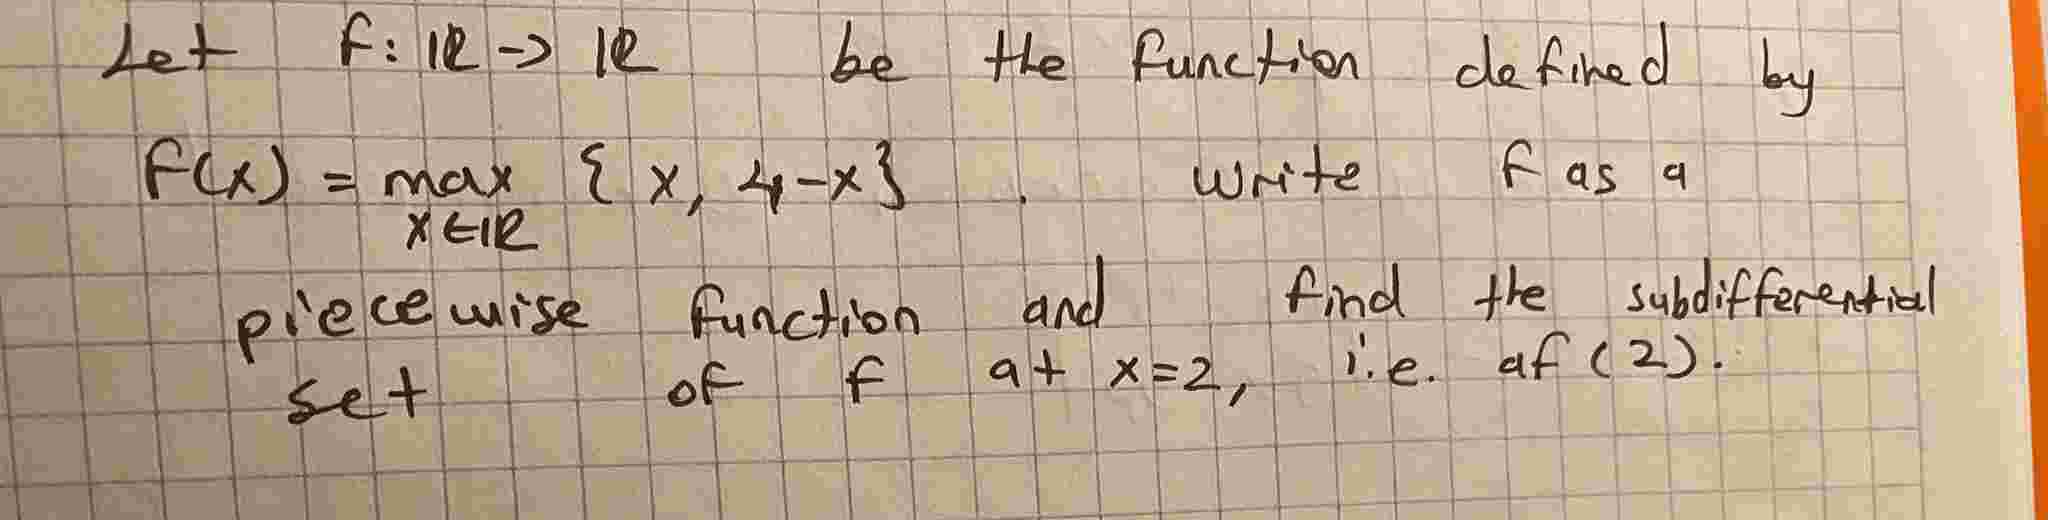 Let f: ℝ -> ℝ be the function defined by
f(x) = max {x, 4-x} . write f as a
x∈ℝ
piecewise function and find the subdifferential
set of f at x=2, i.e. ∂f(2).